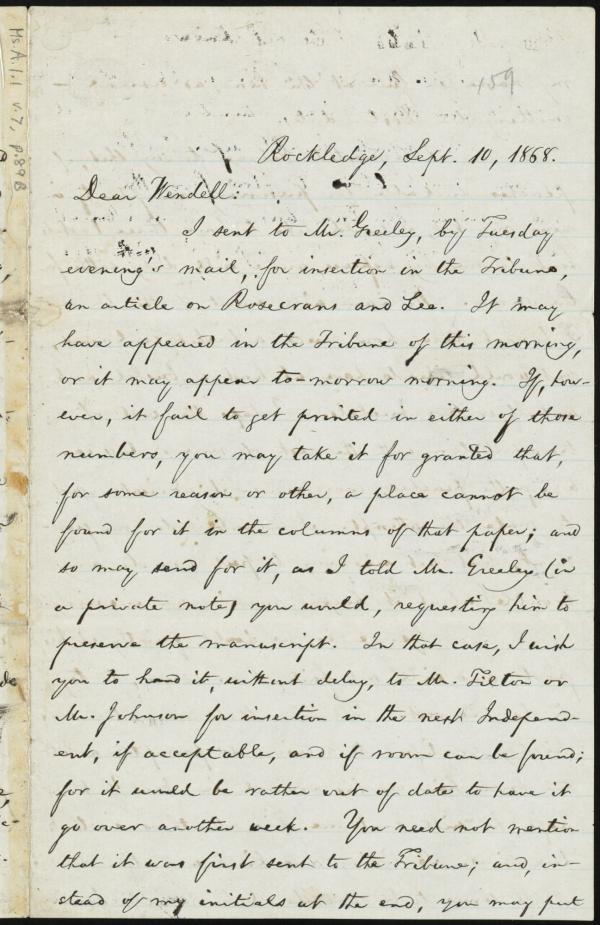 Ms.A.1.1 v.7, p.89B
159
Rockledge, Sept. 10, 1868.
Dear Wendell:
I sent to Mr. Greeley, by Tuesday
evening's mail, for insertion in the Tribune,
an article on Rosecrans and Lee. It may
have appeared in the Tribune of this morning,
or it may appear to-morrow morning. If, how-
ever, it fail to get printed in either of those
numbers, you may take it for granted that,
for some reason or other, a place cannot be
found for it in the columns of that paper; and
so may send for it, as I told Mr. Greeley (in
a private note) you would, requesting him to
preserve the manuscript. In that case, I wish
you to hand it, without delay, to Mr. Tilton or
Mr. Johnson for insertion in the next Independ-
ent, if acceptable, and if room can be found;
for it would be rather out of date to have it
go over another week. You need not mention
that it was first sent to the Tribune; and, in-
stead of my initials at the end, you may put